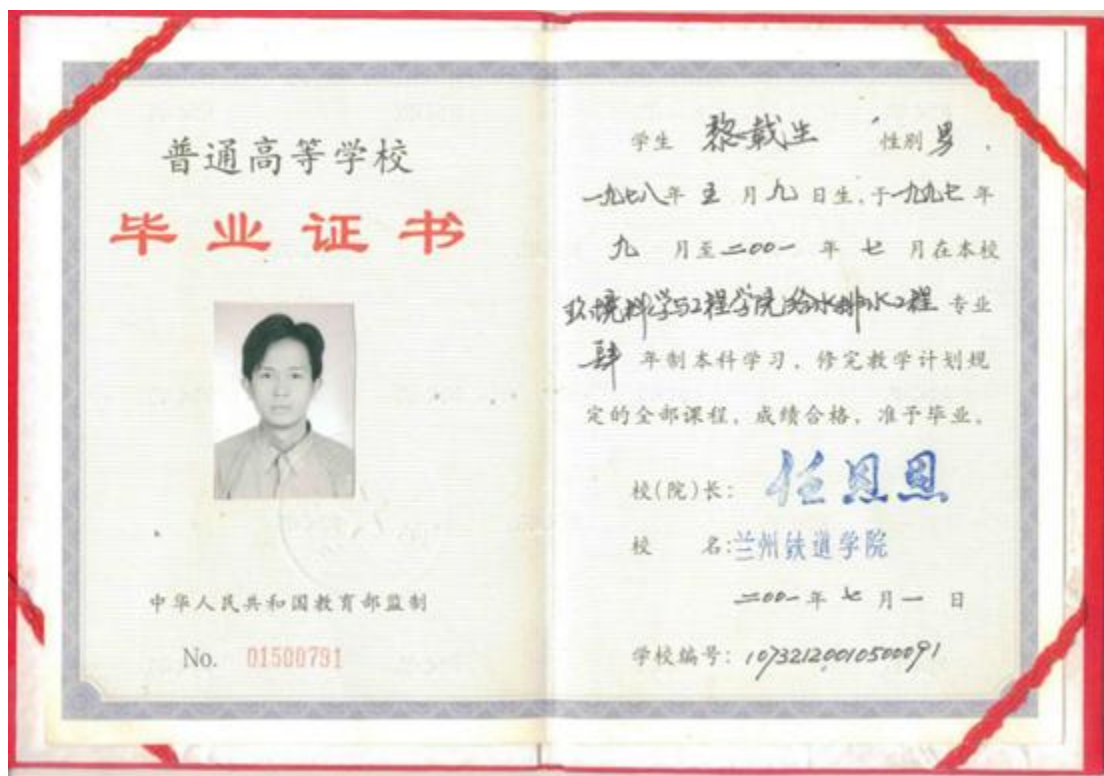 普通高等学校
毕业证书
中华人民共和国教育部监制
No. 01500791
学生 黎載生 性别 男 ,
一九七八年 五 月 九 日生,于一九九七年
九 月至 二〇〇一 年 七 月在本校
环境科学与工程学院给水排水工程 专业
肆 年制本科学习,修完教学计划规
定的全部课程,成绩合格,准予毕业。
校(院)长: 任恩恩
校 名:兰州铁道学院
二〇〇一年 七 月 一 日
学校编号: 10732120010500091